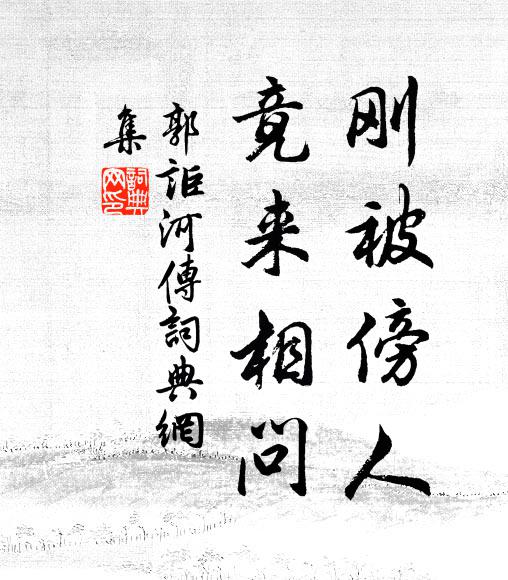 刚被傍人
竟来相问
郭讵河傳詞典網
集
詞典
网印